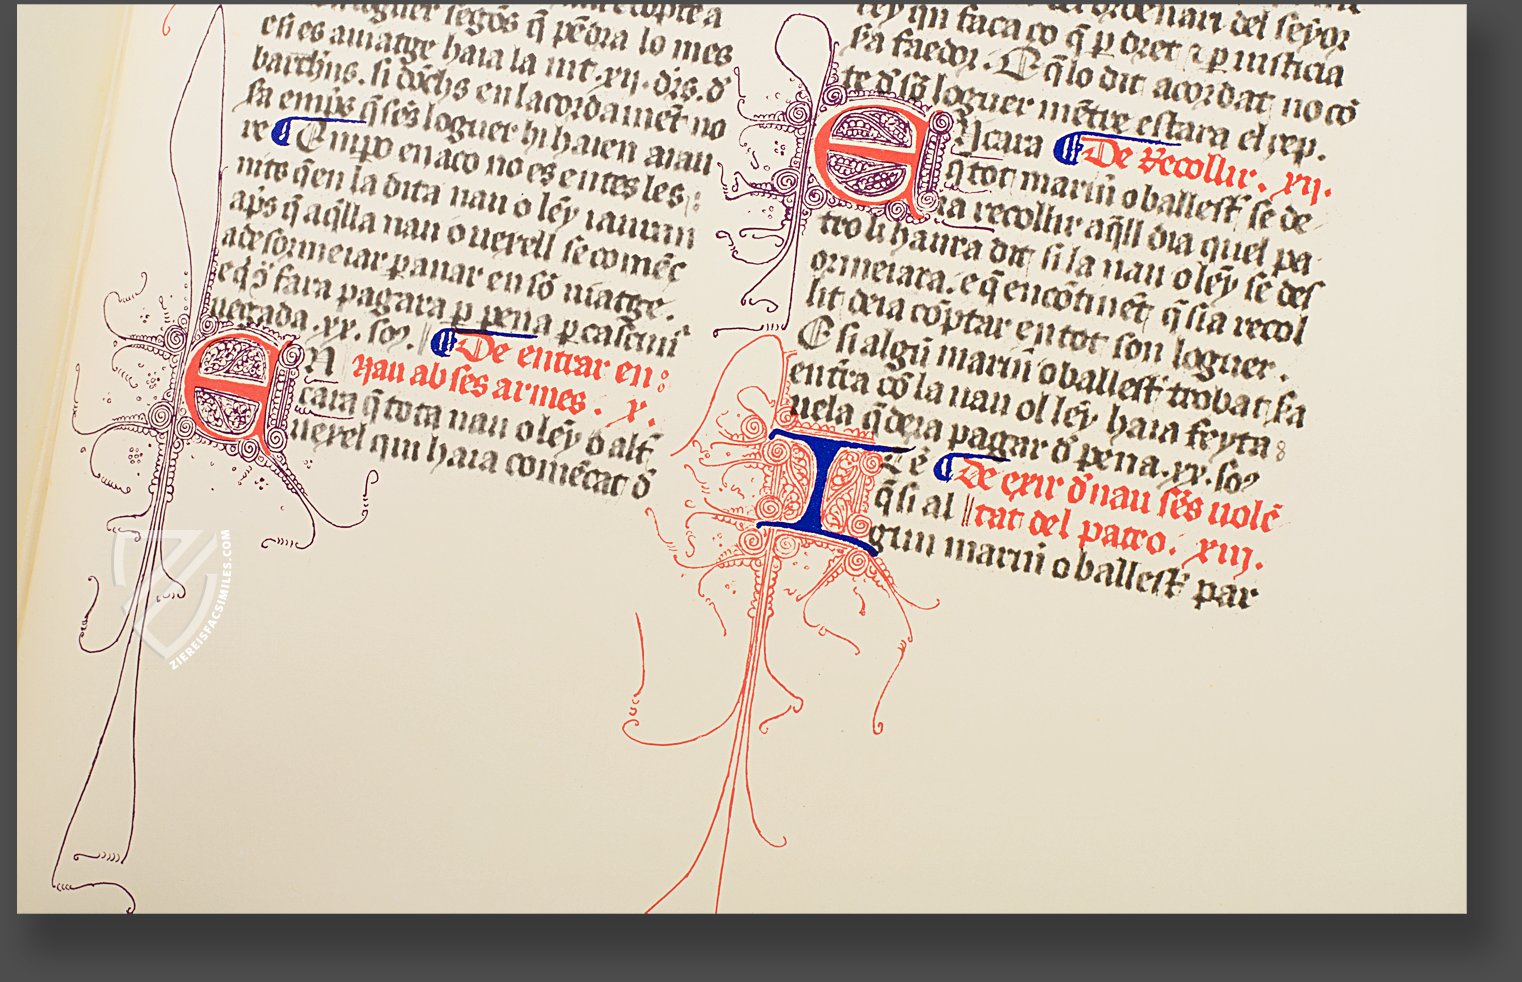 es es auiatge haia la mt. xij. drs. d̄
barchn̄s. si dōchs en lacordamēt no
re ¶ Empo en aco no es entes les
mts q̄ en la dita nau o lēy iauran
ap̄s q̄ aq̄lla nau o uexell se comēc
adesormeiar p anar en sō uiatge.
eq̄ ỹ fara pagara p pena p cascun
uegada .xx. soỻ. ¶ De entrar en
EN nau ab ses armes. x.
cara q̄ tota nau o lēy o alt̄
uexel qui haia comēcat d̄
ley qn faca co q̄ p dret ⁊ p iusticia
sia faedor. E q̄ lo dit acordat no cō
te d̄ sō loguer mētre estara el rep.
ENcara ¶ De Recollir. xij.
q̄ tot marin̄ o ballest̄ se de
ia recollir aq̄ll dia quel pa
tro li haura dit si la nau o lēy se des
ormeiara. e q̄ encōtinēt q̄ sia recol
lit deia cōptar en tot son loguer.
E si algū marin̄ o ballest̄ trobat sa
entra cō la nau o l lēy haia feyta
uela q̄ deia pagar d̄ pena .xx. soỻ
ITē ¶ De exir d̄ nau sēs uolē
q̄ si al tat del patro. xiij.
gun marin̄ o ballest̄ par
ZIEREISFACSIMILES.COM